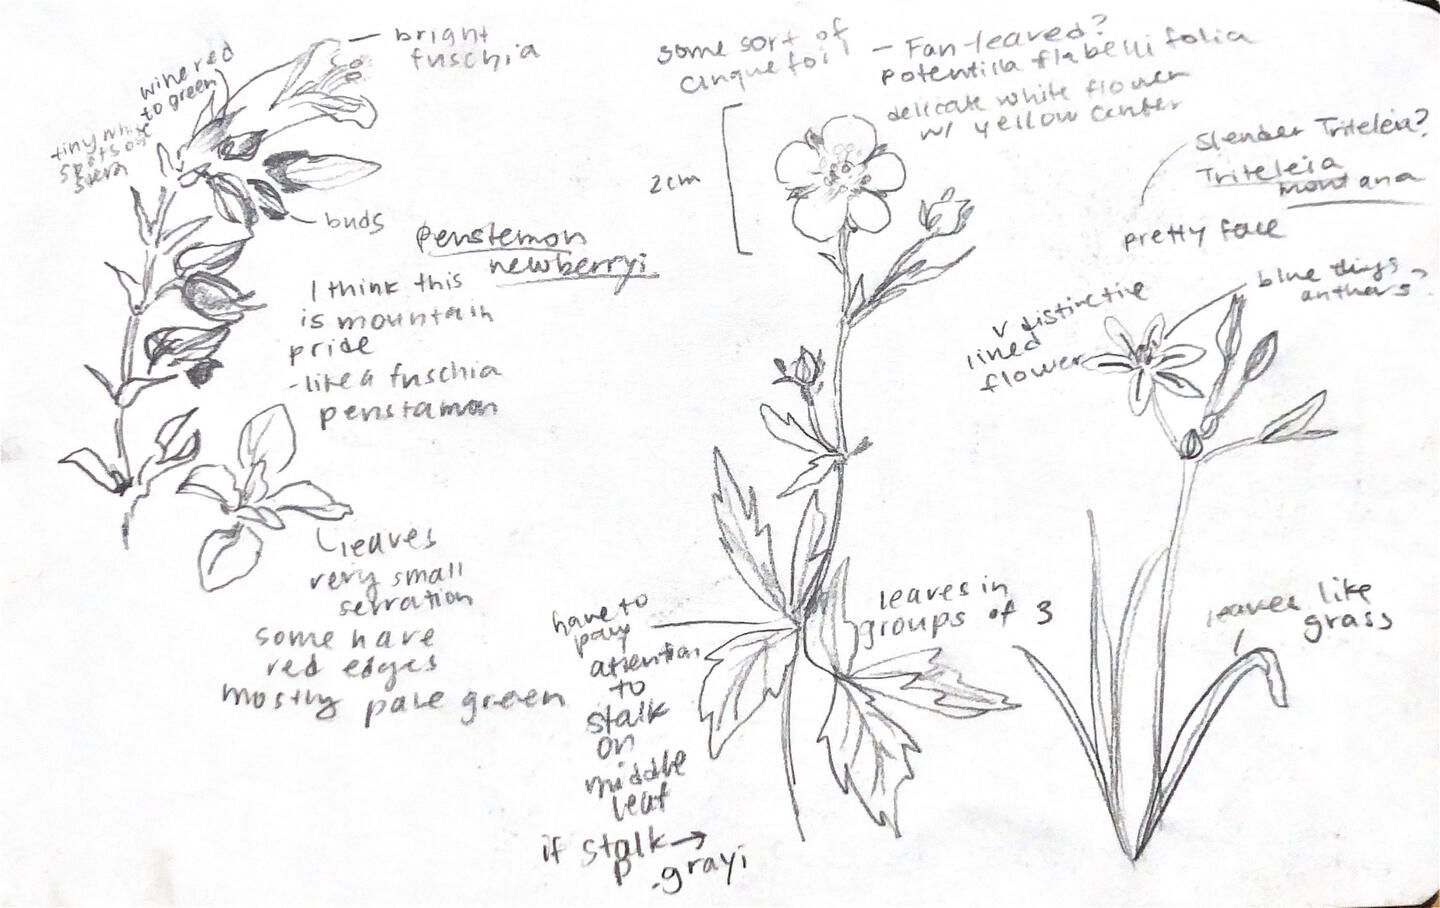 bright
fuschia
wine red
to green
tiny white
spots on
stem
buds
penstemon
newberryi
I think this
is mountain
pride
-like a fuschia
penstamon
leaves
very small
serration
some have
red edges
mostly pale green
some sort of
cinquefoil
- Fan-leaved?
potentilla flabellifolia
delicate white flower
w/ yellow center
2cm
leaves in
groups of 3
have to
pay
attention
to
stalk
on
middle
leaf
if stalk →
P. grayi
Slender Triteleia?
Triteleia
montana
pretty face
v distinctive
lined
flower
blue things
anthers?
leaves like
grass